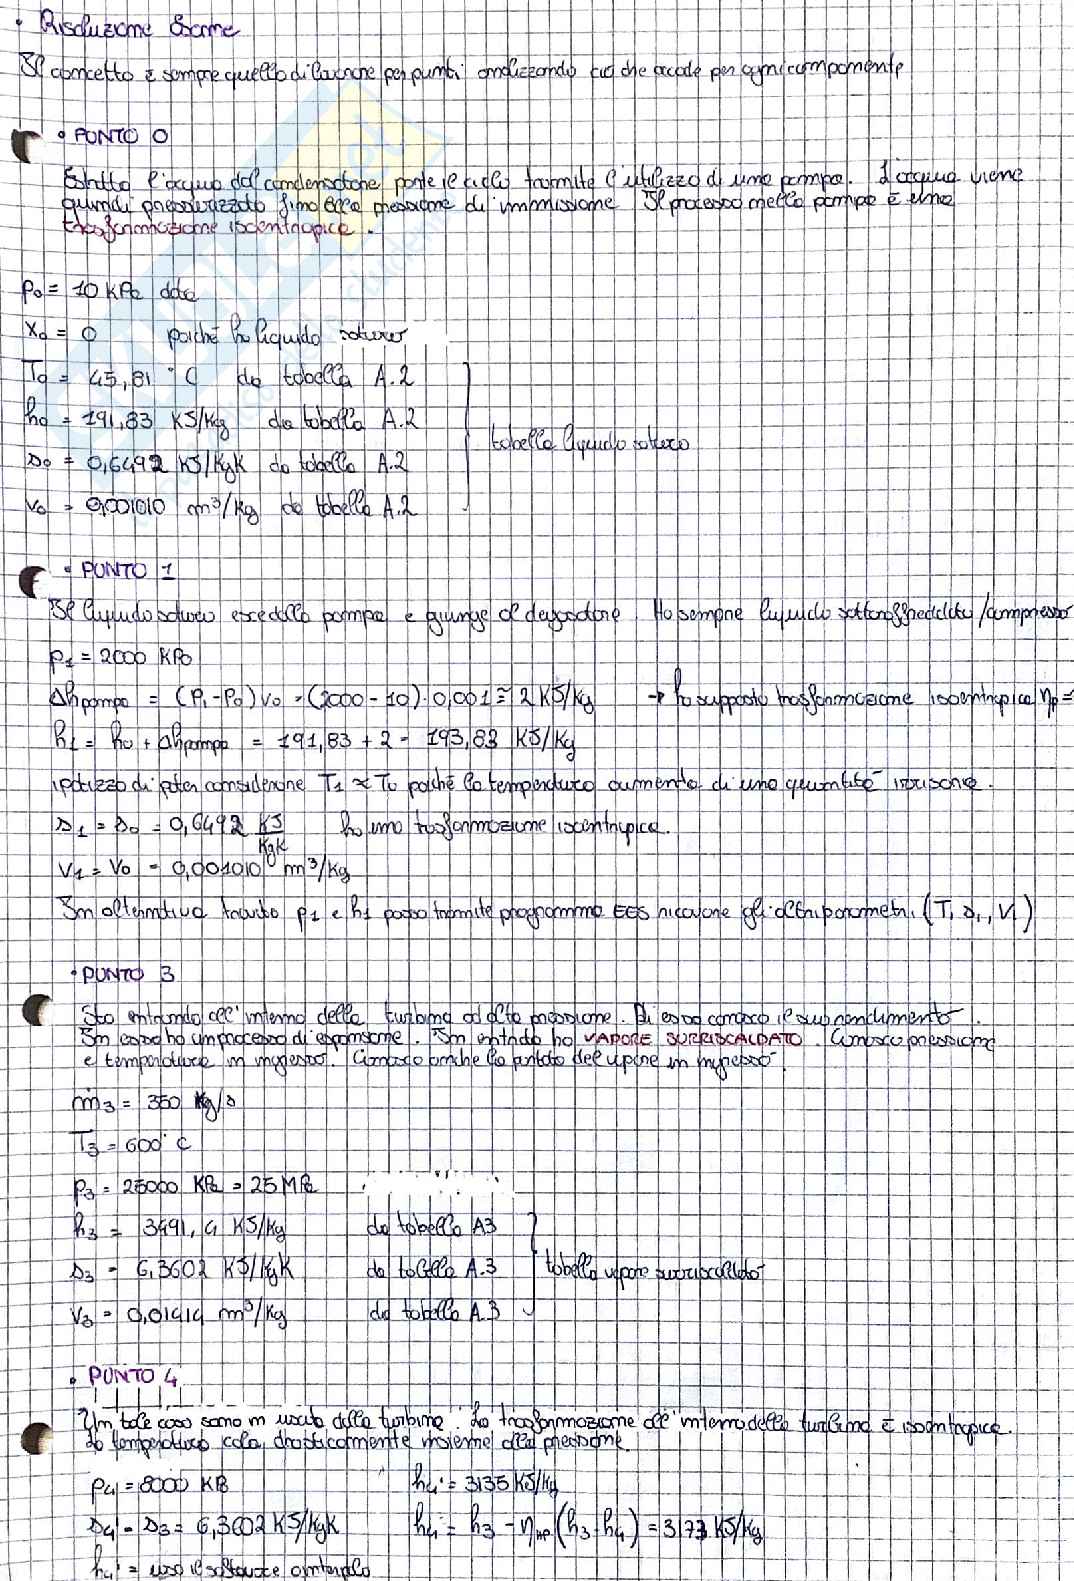 • Risoluzione Esame
Il concetto è sempre quello di lavorare per punti analizzando ciò che accade per ogni componente
• PUNTO 0
Estratta l'acqua dal condensatore parte il ciclo tramite l'utilizzo di una pompa. L'acqua viene
quindi pressurizzata fino alla pressione di immissione Il processo nella pompa è una
trasformazione isoentropica.
p0 = 10 KPa dato
x0 = 0 poiché ho liquido saturo
T0 = 45,81 °C da tabella A.2
h0 = 191,83 KJ/Kg da tabella A.2
s0 = 0,6492 KJ/KgK da tabella A.2
tabella liquido saturo
v0 = 0,001010 m³/Kg da tabella A.2
• PUNTO 1
Il liquido saturo esce dalla pompa e giunge al degasatore. Ho sempre liquido sottoraffreddato/compresso
p1 = 2000 KPa
Δhpompa = (P1-P0) v0 = (2000-10)·0,001 ≅ 2 KJ/Kg → ho supposto trasformazione isoentropica ηp=
h1 = h0 + Δhpompa = 191,83 + 2 = 193,83 KJ/Kg
ipotizzo di poter considerare T1 ≈ T0 poiché la temperatura aumenta di una quantità irrisoria.
s1 = s0 = 0,6492 KJ/KgK ho una trasformazione isoentropica.
v1 = v0 = 0,001010 m³/Kg
In alternativa tramite p1 e h1 posso tramite programma EES ricavare gli altri parametri (T1 s1, v1)
• PUNTO 3
Sto entrando all'interno della turbina ad alta pressione. Di essa conosco il suo rendimento.
In essa ho un processo di espansione. In entrata ho VAPORE SURRISCALDATO. Conosco pressione
e temperatura in ingresso. Conosco anche la portata del vapore in ingresso.
ṁ3 = 350 Kg/s
T3 = 600 °C
p3 = 25000 KPa = 25 MPa
h3 = 3491,4 KJ/Kg da tabella A3
s3 = 6,3602 KJ/KgK da tabella A.3
tabella vapore surriscaldato
v3 = 0,01414 m³/Kg da tabella A.3
• PUNTO 4
In tale caso sono in uscita dalla turbina. La trasformazione all'interno della turbina è isoentropica.
La temperatura cala drasticamente insieme alla pressione.
p4 = 8000 KPa h4' = 3135 KJ/Kg
s4' = s3 = 6,3602 KJ/KgK h4 = h3 - η (h3-h4') = 3173 KJ/Kg
h4' = uso il software